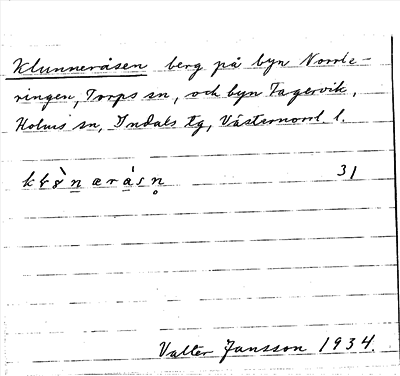 Klunneråsen berg på byn Norrie-
ringen, Torps sn, och byn Fagervik,
Holms sn, Indals tg, Västernorrl. l.
31
Valter Jansson 1934.